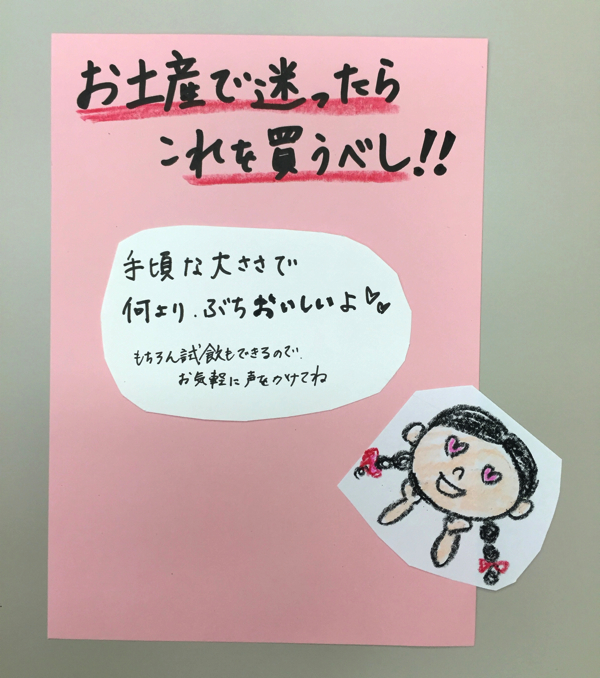 お土産で迷ったら
これを買うべし!!
手頃な大きさで
何より、ぶちおいしいよ♡♡
もちろん試飲もできるので、
お気軽に声をかけてね